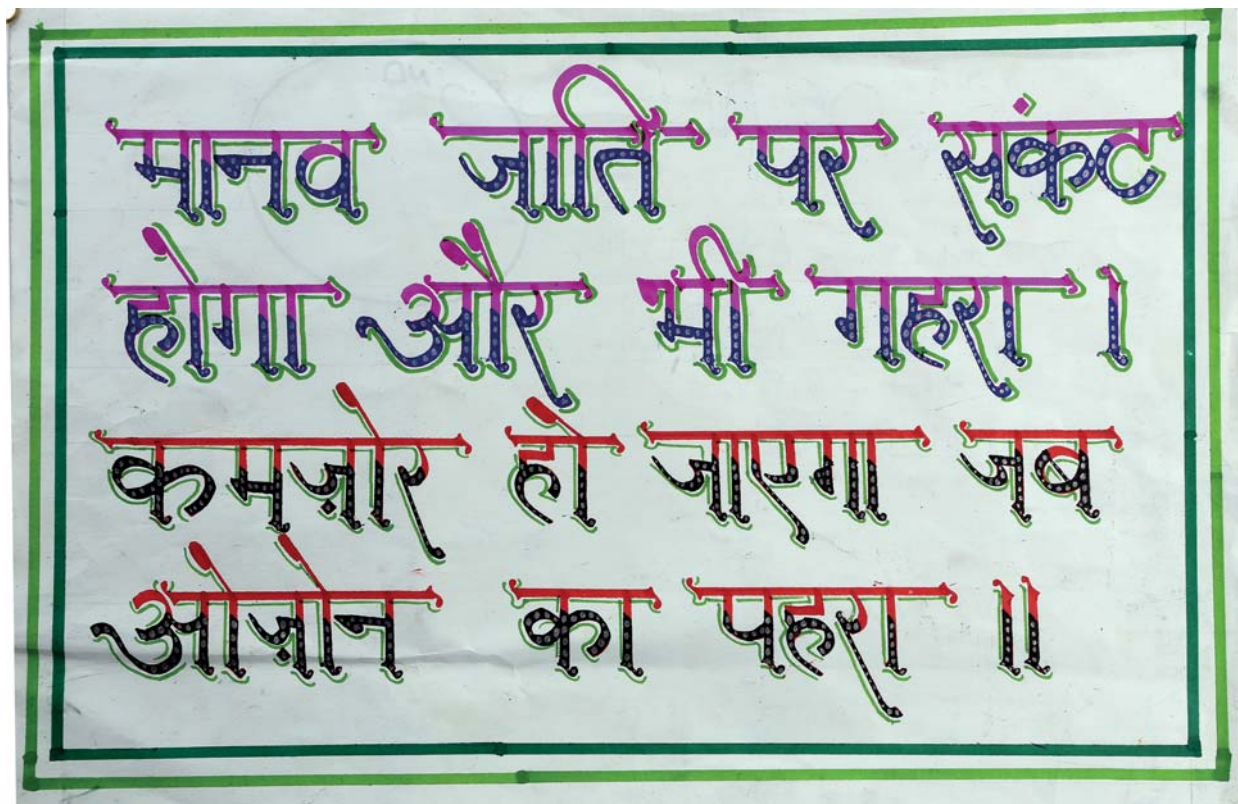 मानव जाति पर संकट
होगा और भी गहरा ।
कमज़ोर हो जाएगा जब
ओज़ोन का पहरा ॥